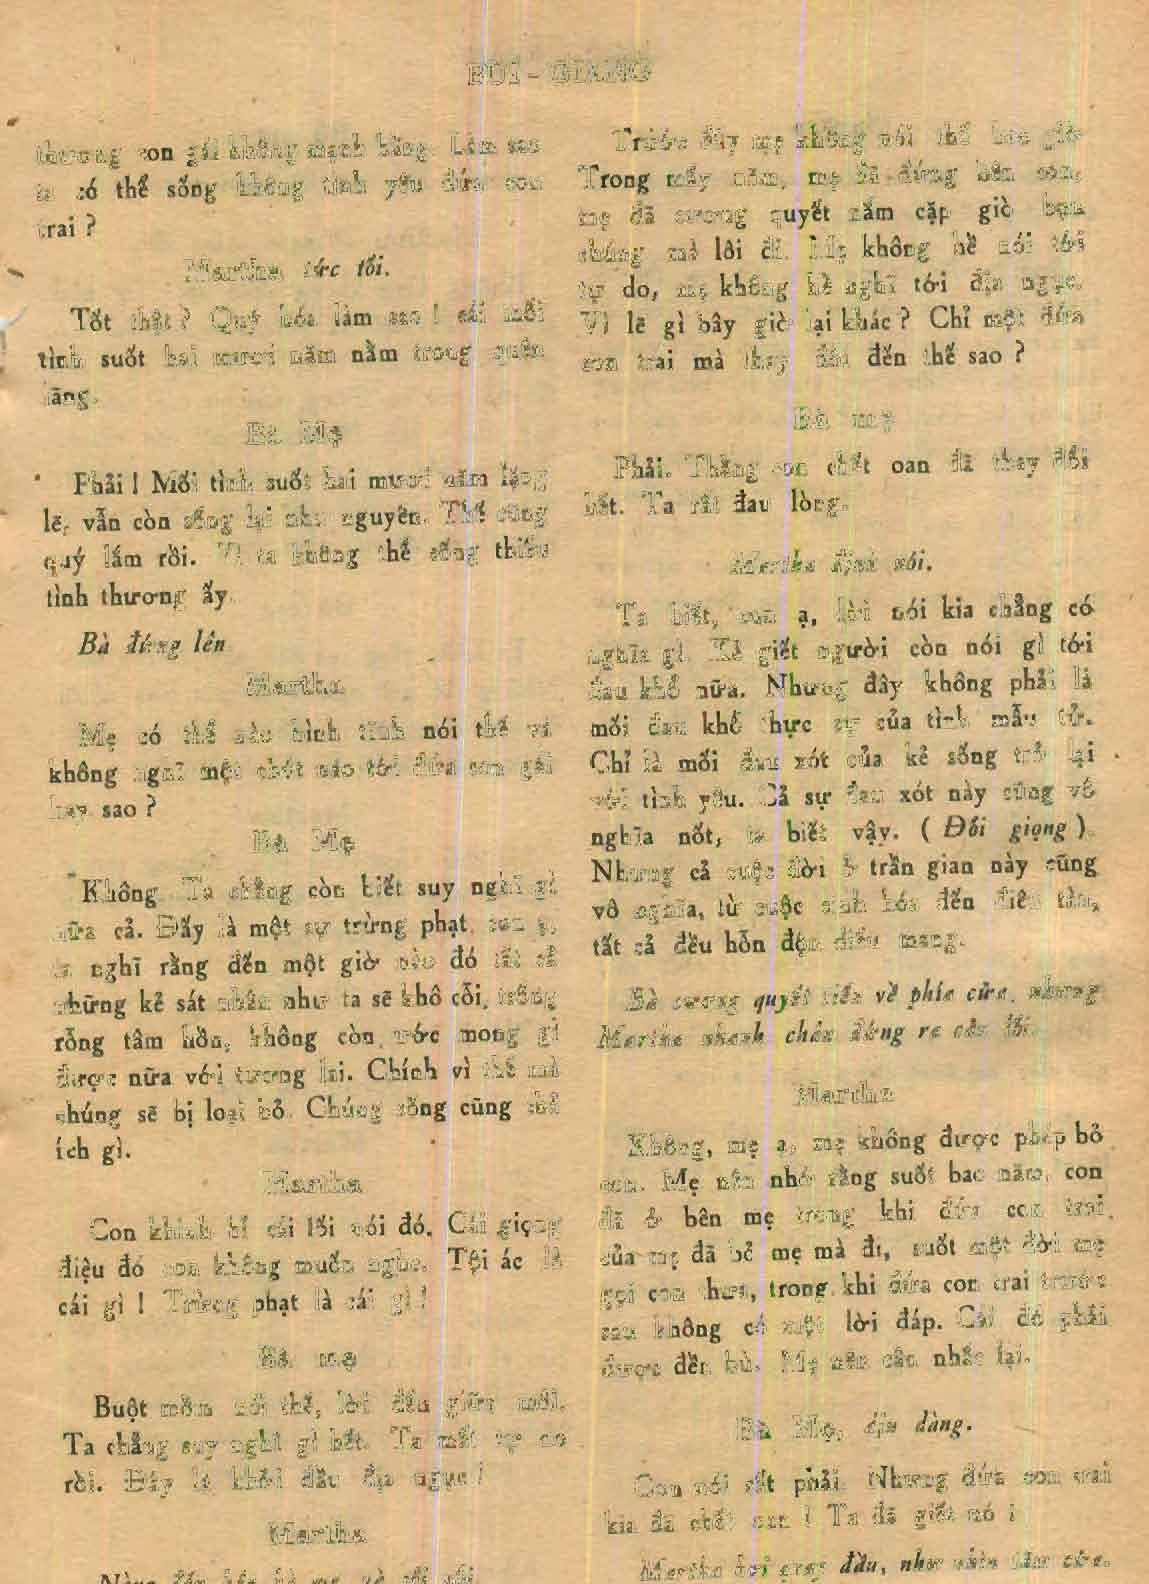 BÙI - GIÁNG
thương con gái không mạnh bằng. Làm sao
ta có thể sống không tình yêu đứa con
trai ?
Martha tức tối.
Tốt thật ? Quý hóa làm sao ! cái mối
tình suốt hai mươi năm nằm trong quên
lãng.
Bà Mẹ
Phải ! Mối tình suốt hai mươi năm lặng
lẽ, vẫn còn sống lại như nguyên. Thế cũng
quý lắm rồi. Vì ta không thể sống thiếu
tình thương ấy.
Bà đứng lên
Martha
Mẹ có thể nào bình tĩnh nói thế và
không nghĩ một chút nào tới đứa con gái
hay sao ?
Bà Mẹ
Không. Ta chẳng còn biết suy nghĩ gì
nữa cả. Đấy là một sự trừng phạt, con ạ,
ta nghĩ rằng đến một giờ nào đó tất cả
những kẻ sát nhân như ta sẽ khô cỗi, trống
rỗng tâm hồn, không còn ước mong gì
được nữa với tương lai. Chính vì thế mà
chúng sẽ bị loại bỏ. Chúng sống cũng chả
ích gì.
Martha
Con khinh bỉ cái lối nói đó. Cái giọng
điệu đó con không muốn nghe. Tội ác là
cái gì ! Trừng phạt là cái gì !
Bà mẹ
Buột mồm nói thế, lời đến giữa môi.
Ta chẳng suy nghĩ gì hết. Ta mất tự do
rồi. Đây là khởi đầu địa ngục !
Martha
Trước đây mẹ không nói thế bao giờ
Trong mấy năm, mẹ đã đứng bên con,
mẹ đã cương quyết nắm cặp giò bọn
chúng mà lôi đi. Mẹ không hề nói tới
tự do, mẹ không hề nghĩ tới địa ngục.
Vì lẽ gì bây giờ lại khác ? Chỉ một đứa
con trai mà thay đổi đến thế sao ?
Bà mẹ
Phải. Thằng con chết oan đã thay đổi
hết. Ta rất đau lòng.
Martha định nói.
Ta biết, con ạ, lời nói kia chẳng có
nghĩa gì. Kẻ giết người còn nói gì tới
đau khổ nữa. Nhưng đây không phải là
mối đau khổ thực sự của tình mẫu tử.
Chỉ là mối đau xót của kẻ sống trở lại
với tình yêu. Cả sự đau xót này cũng vô
nghĩa nốt, ta biết vậy. ( Đổi giọng ).
Nhưng cả cuộc đời ở trần gian này cũng
vô nghĩa, từ cuộc sinh hóa đến điêu tàn,
tất cả đều hỗn độn điêu mang.
Bà cương quyết tiến về phía cửa, nhưng
Martha nhanh chân đứng ra cản lối.
Martha
Không, mẹ ạ, mẹ không được phép bỏ
con. Mẹ nên nhớ rằng suốt bao năm, con
đã ở bên mẹ trong khi đứa con trai
của mẹ đã bỏ mẹ mà đi, suốt một đời mẹ
gọi con thưa, trong khi đứa con trai trước
sau không có một lời đáp. Cái đó phải
được đền bù. Mẹ nên cân nhắc lại.
Bà Mẹ, dịu dàng.
Con nói rất phải. Nhưng đứa con trai
kia đã chết oan ! Ta đã giết nó !
Martha hơi quay đầu, như nhìn tấm cửa.